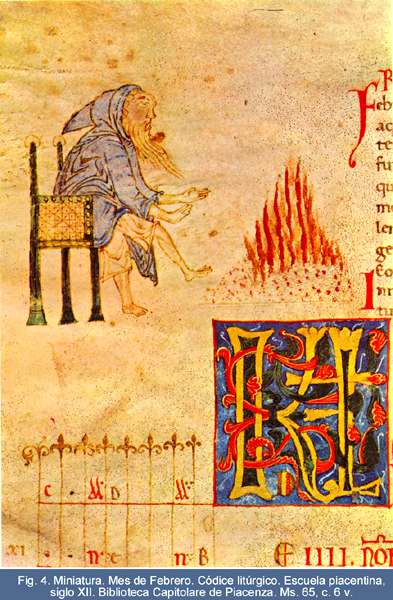 Feb
aq
te
fu
qu
len
ge
tu
KL
c D
XI n e n B
IIII. NON
Fig. 4. Miniatura. Mes de Febrero. Códice litúrgico. Escuela piacentina,
siglo XII. Biblioteca Capitolare de Piacenza. Ms. 65, c. 6 v.